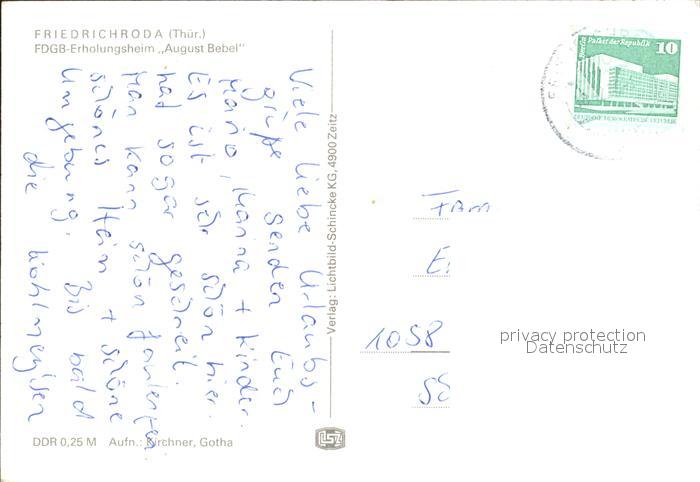 FRIEDRICHRODA (Thür.)
FDGB-Erholungsheim „August Bebel"
Viele liebe Urlaubs-
grüße senden Euch
Mario, Marina + Kinder.
Es ist sehr schön hier.
hat sogar geschneit.
Man kann schön faulenzen
schönes Heim + schöne
Umgebung. Bis bald
die
DDR 0,25 M Aufn.: Kirchner, Gotha
Verlag: Lichtbild-Schincke KG, 4900 Zeitz
Berlin Palast der Republik 10
DEUTSCHE DEMOKRATISCHE REPUBLIK
Fam
E
1058
privacy protection
Datenschutz